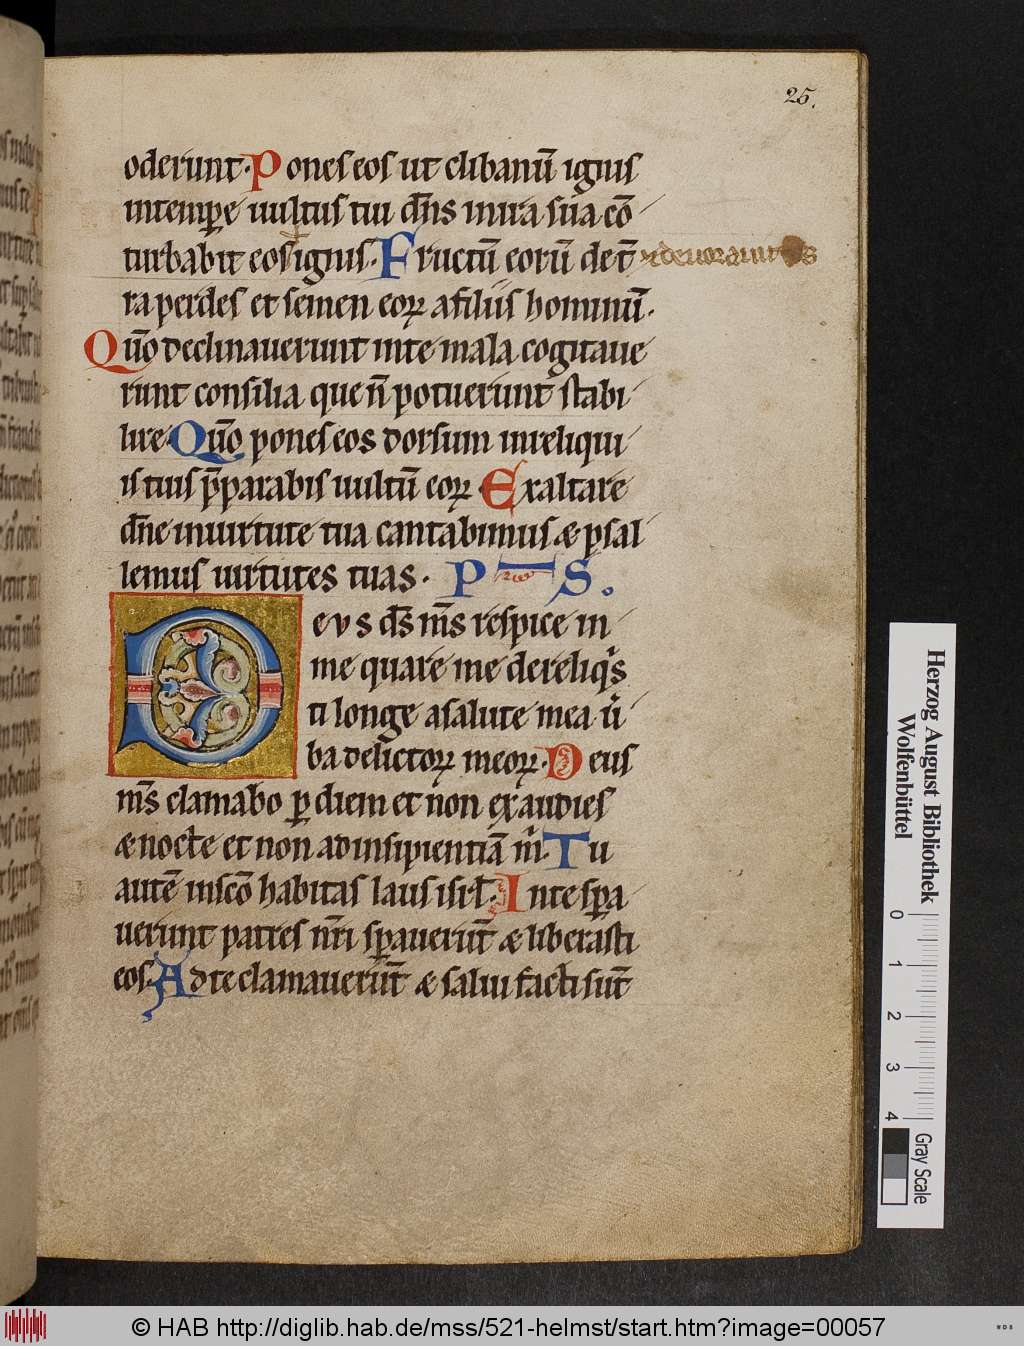 25.
oderunt. Pones eos ut clibanū ignis
intemꝑe uultus tui dn̄s inira sua cō
turbabit eos ignis. Fructū eorū de t̄
& deuorauit eos
ra perdes et semen eoꝝ afiliis hominū.
Quō declinauerunt inte mala cogitaue
runt consilia que n̄ potuerunt stabi
lire. Quō pones eos dorsum inreliqui
is tuis p̄parabis uultū eoꝝ. Exaltare
dn̄e inuirtute tua cantabimus & psal
lemus uirtutes tuas. P S.
Deus ds̄ ms̄ respice in
me quare me dereliqͥs
ti longe asalute mea u̾
ba delictoꝝ meoꝝ. Deus
ms̄ clamabo ꝑ diem et non exaudies
& nocte et non adinsipientiā m̍. Tu
autē insc̄o habitas laus isrl̄. Inte sꝑa
uerunt patres nr̄i sꝑauerūt & liberasti
eos. Adte clamauerūt & salui facti sūt
Herzog August Bibliothek
Wolfenbüttel
0 1 2 3 4
Gray Scale
© HAB http://diglib.hab.de/mss/521-helmst/start.htm?image=00057